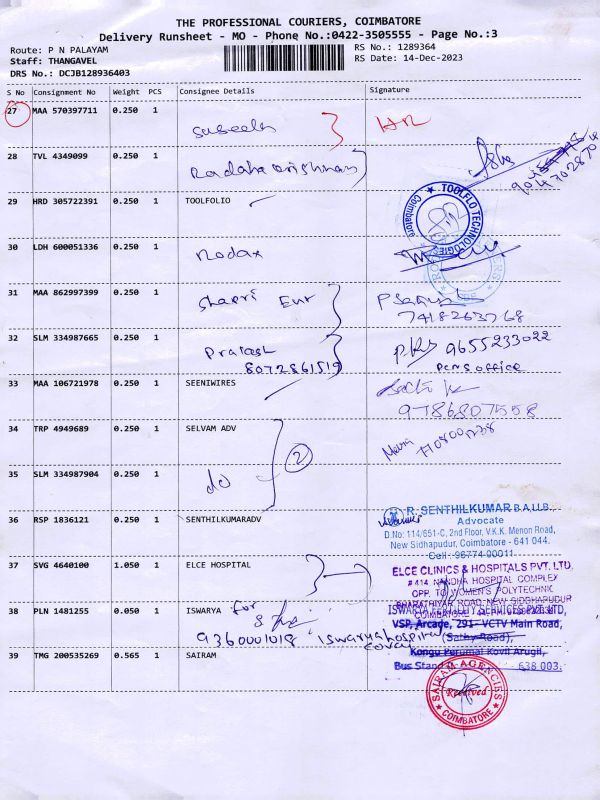 THE PROFESSIONAL COURIERS, COIMBATORE
Delivery Runsheet - MO - Phone No.:0422-3505555 - Page No.:3
Route: P N PALAYAM
RS No.: 1289364
Staff: THANGAVEL
RS Date: 14-Dec-2023
DRS No.: DCJB128936403
S No Consignment No Weight PCS Consignee Details Signature
27 MAA 570397711 0.250 1
28 TVL 4349099 0.250 1
29 HRD 305722391 0.250 1 TOOLFOLIO
TOOLFLO TECHNOLOGIES
Coimbatore
30 LDH 600051336 0.250 1 Nodax
31 MAA 862997399 0.250 1 Shapri Eur
7418263768
32 SLM 334987665 0.250 1 Pralash
8072861519
9655233022
office
33 MAA 106721978 0.250 1 SEENIWIRES
9786807558
34 TRP 4949689 0.250 1 SELVAM ADV
2
35 SLM 334987904 0.250 1 do
36 RSP 1836121 0.250 1 SENTHILKUMARADV
R. SENTHILKUMAR B.A.,L.L.B.,
Advocate
D.No: 114/651-C, 2nd Floor, V.K.K. Menon Road,
New Sidhapudur, Coimbatore - 641 044.
Cell : 98774 00011
37 SVG 4640100 1.050 1 ELCE HOSPITAL
ELCE CLINICS & HOSPITALS PVT. LTD.
# 414, NANDHA HOSPITAL COMPLEX
OPP. TO WOMEN'S POLYTECHNIC
BHARATHIYAR ROAD, NEW SIDGHAPUDUR
38 PLN 1481255 0.050 1 ISWARYA for
9360001018 Iswarya hospital
ISWARYA FERTILITY SERVICES PVT LTD,
VSP, Arcade, 291- VCTV Main Road,
(Sathy Road),
Kongu Perumal Kovil Arugil,
Bus Stand
638 003.
39 TMG 200535269 0.565 1 SAIRAM
SAIRAM AGENCIES
Received
COIMBATORE